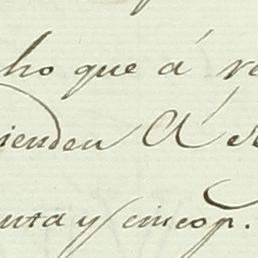 ho que á ve
ienden A
enta y cinco p.